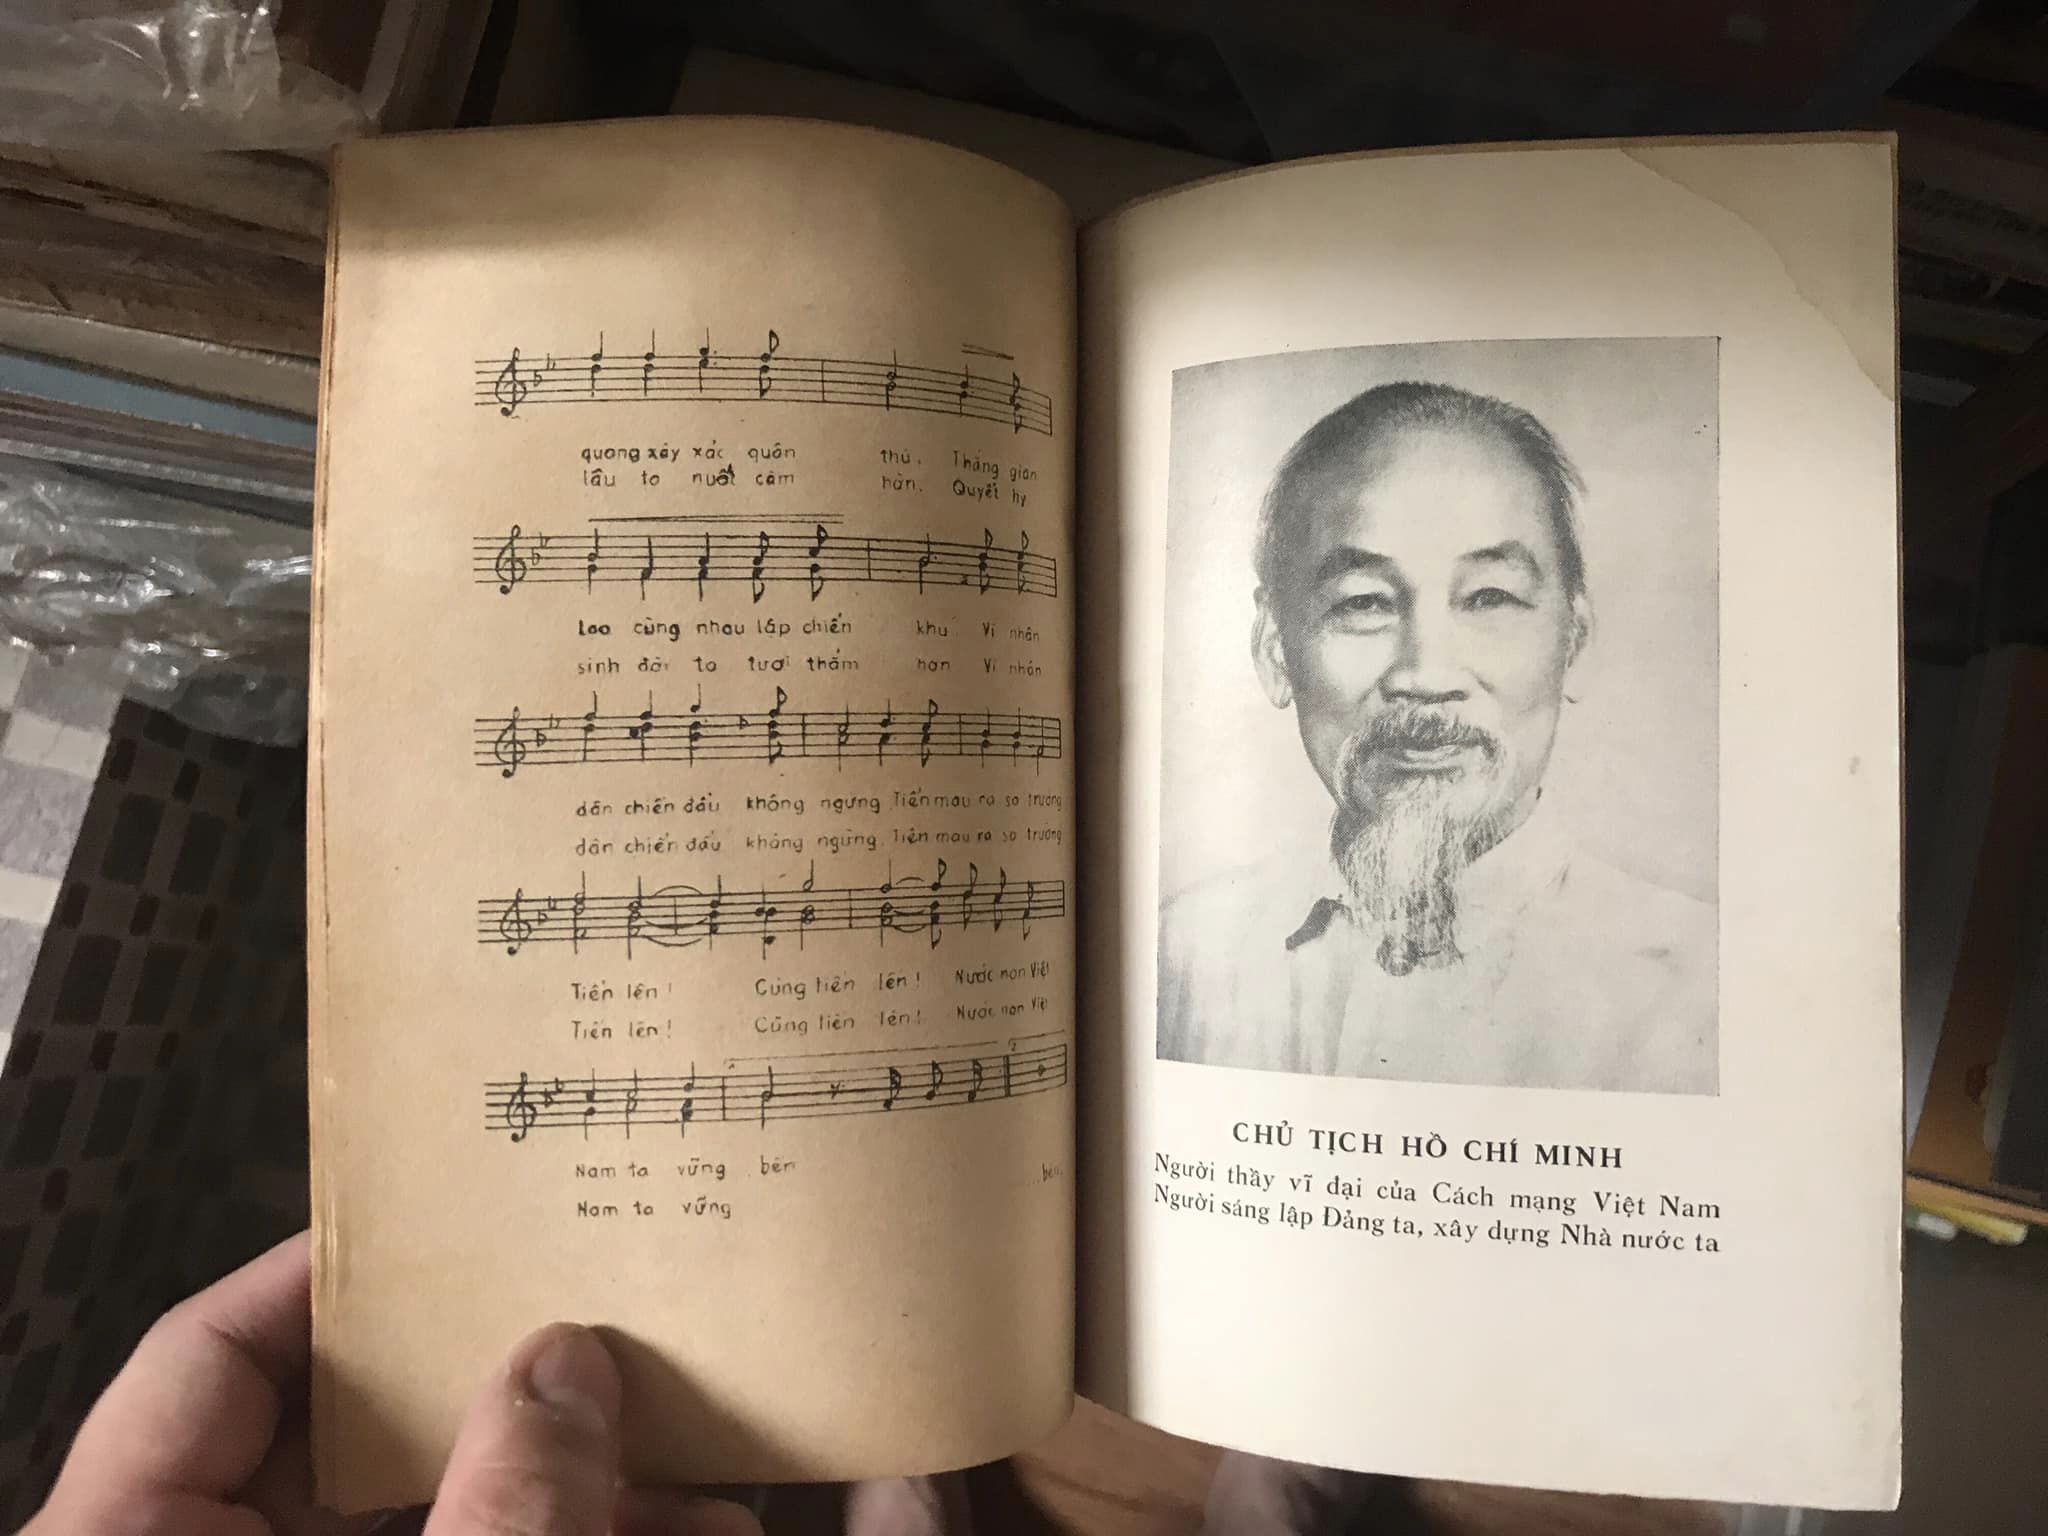 quang xây xác quân thù. Thắng gian
lầu ta nuốt căm hờn. Quyết hy
Lao cùng nhau lập chiến khu Vì nhân
sinh đời ta tươi thắm hơn Vì nhân
dân chiến đấu không ngừng Tiến mau ra sa trường
dân chiến đấu không ngừng. Tiến mau ra sa trường
Tiến lên! Cùng tiến lên! Nước non Việt
Tiến lên! Cùng tiến lên! Nước non Việt
2
Nam ta vững bền bền.
Nam ta vững
CHỦ TỊCH HỒ CHÍ MINH
Người thầy vĩ đại của Cách mạng Việt Nam
Người sáng lập Đảng ta, xây dựng Nhà nước ta